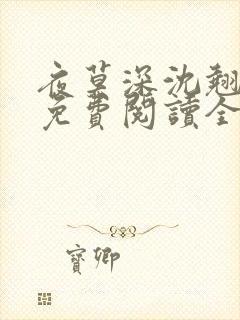 夜草深沈翘
免費閱讀全
寶卿